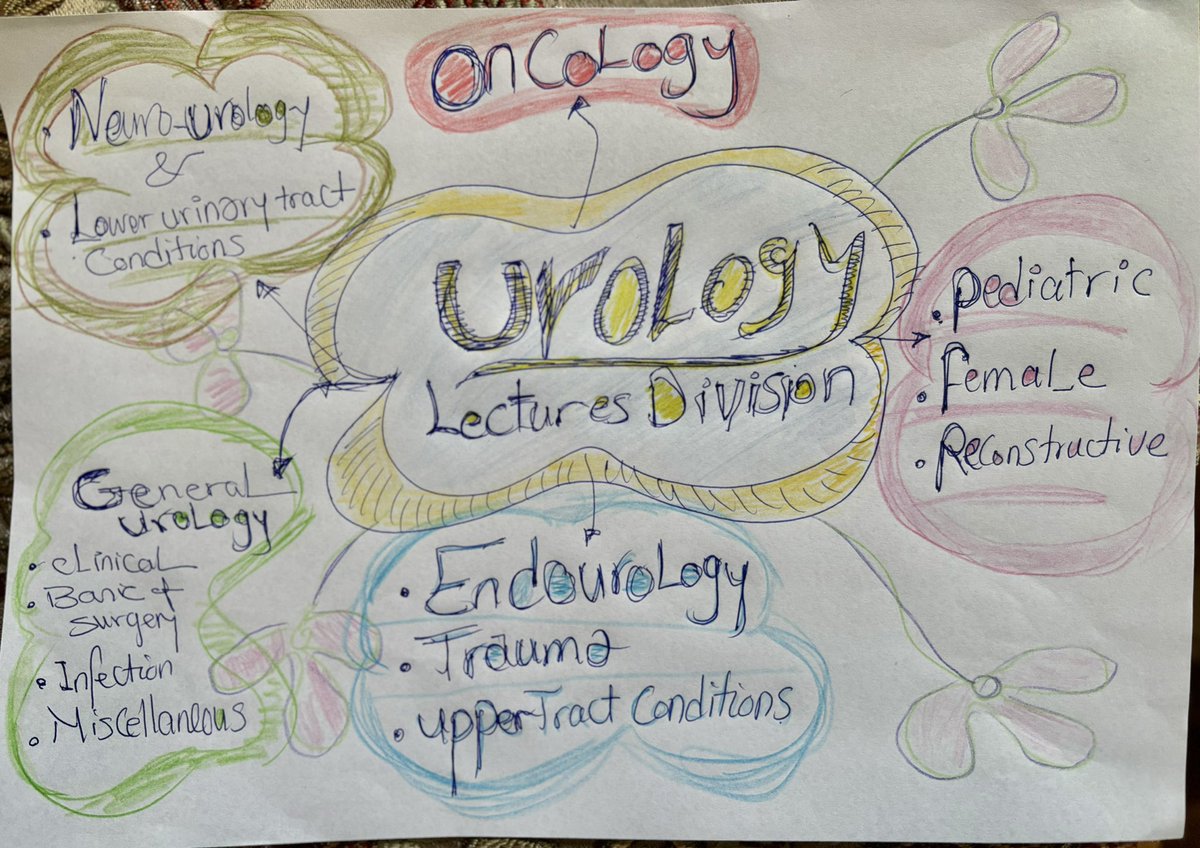 Oncology
• Neuro-urology
&
• Lower urinary tract
Conditions
Urology
Lectures Division
• Pediatric
• Female
• Reconstructive
General
Urology
• Clinical
• Basic &
Surgery
• Infection
• Miscellaneous
• Endourology
• Trauma
• Upper Tract Conditions